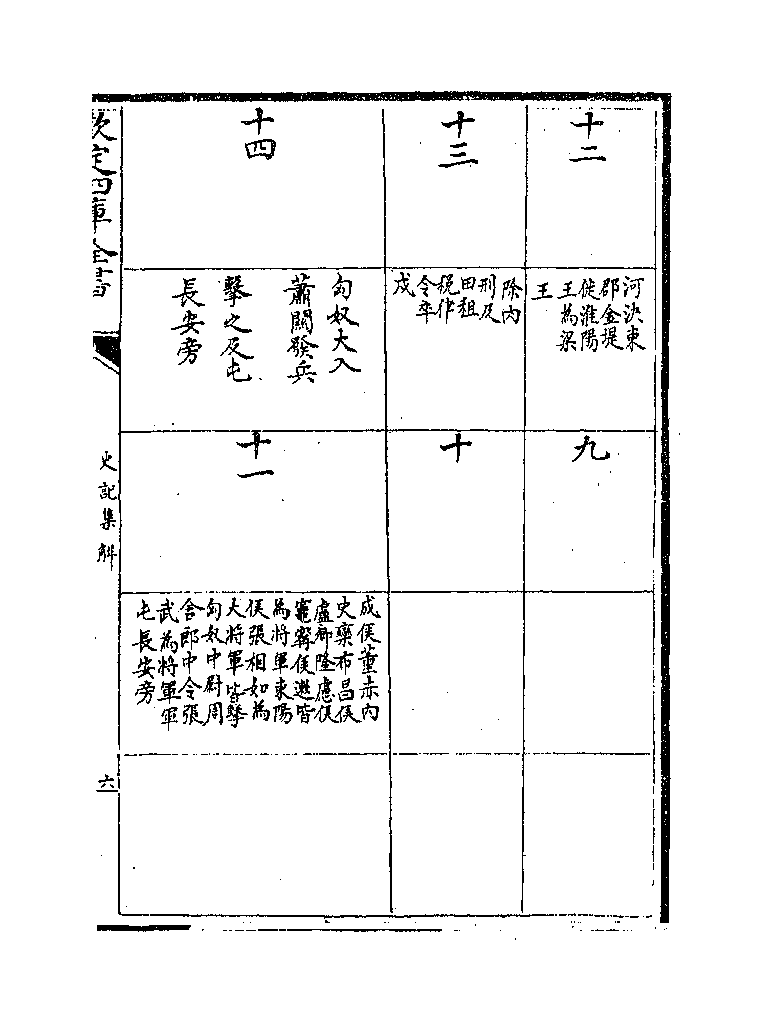 十二
河決東
郡金堤
徙淮陽
王為梁
王
九
十三
除肉
刑及
田租
稅律
令卒
戍
十
十四
匈奴大入
蕭關發兵
擊之及屯
長安旁
十一
成侯董赤內
史欒布昌侯
盧卿隆慮侯
竈甯侯遫皆
為將軍東陽
侯張相如為
大將軍皆擊
匈奴中尉周
舍郎中令張
武為將軍軍
屯長安旁
欽定四庫全書
史記集解
六